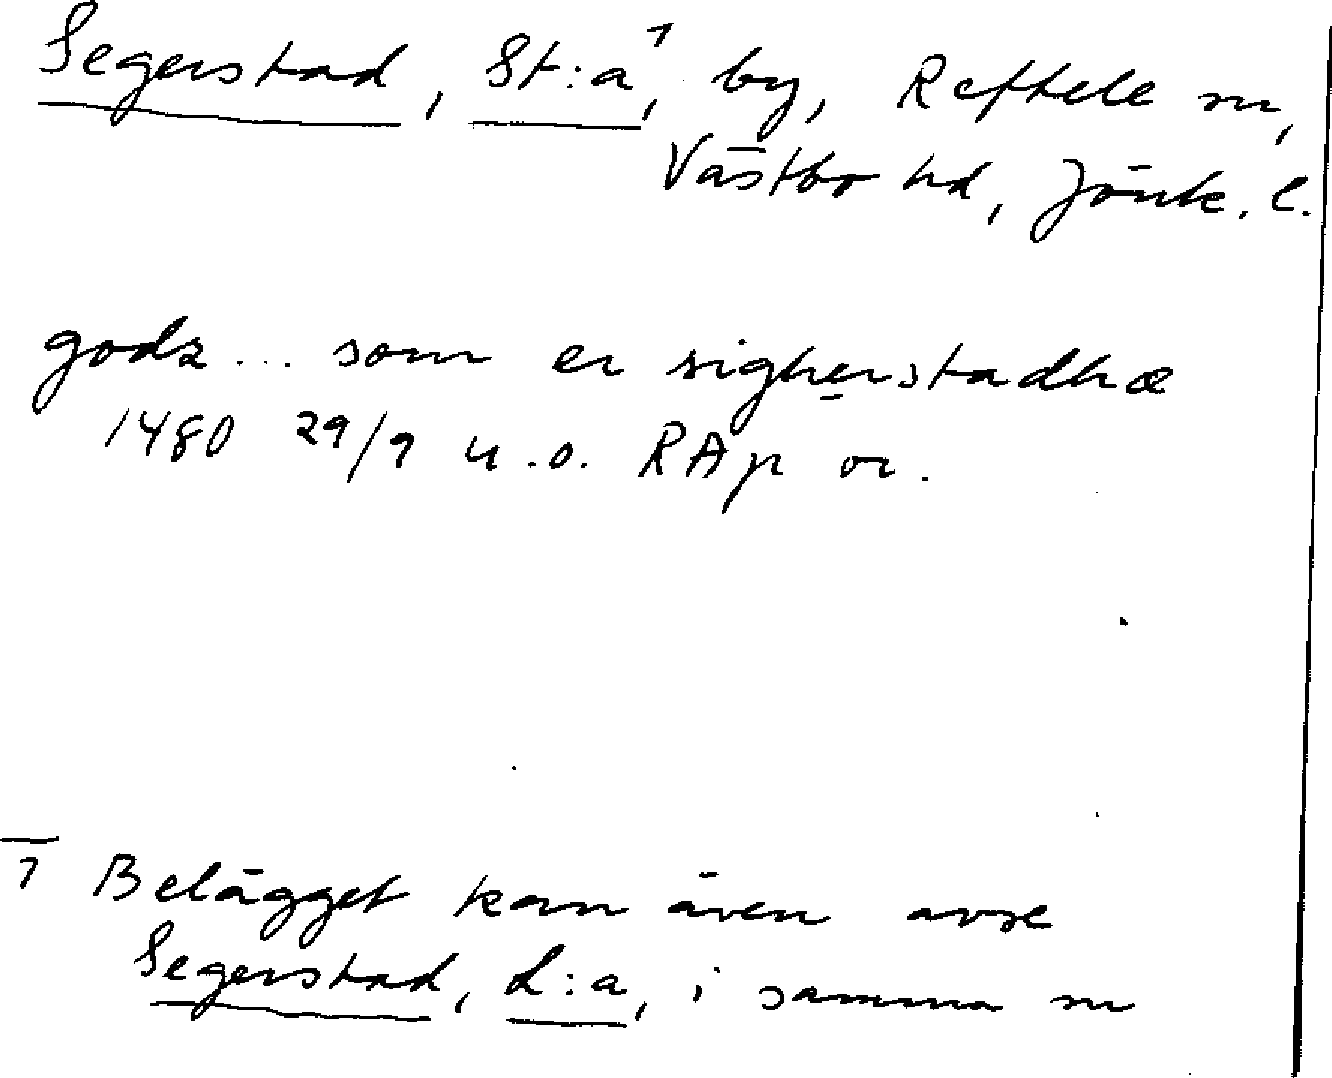 Segerstad, St:a¹, by, Reftele sn,
Västbo hd, Jönk. l.
godz... som er sigherstadhæ
1480 29/9 u.o. RAp or.
1 Belägget kan även avse
Segerstad, L:a, i samma sn